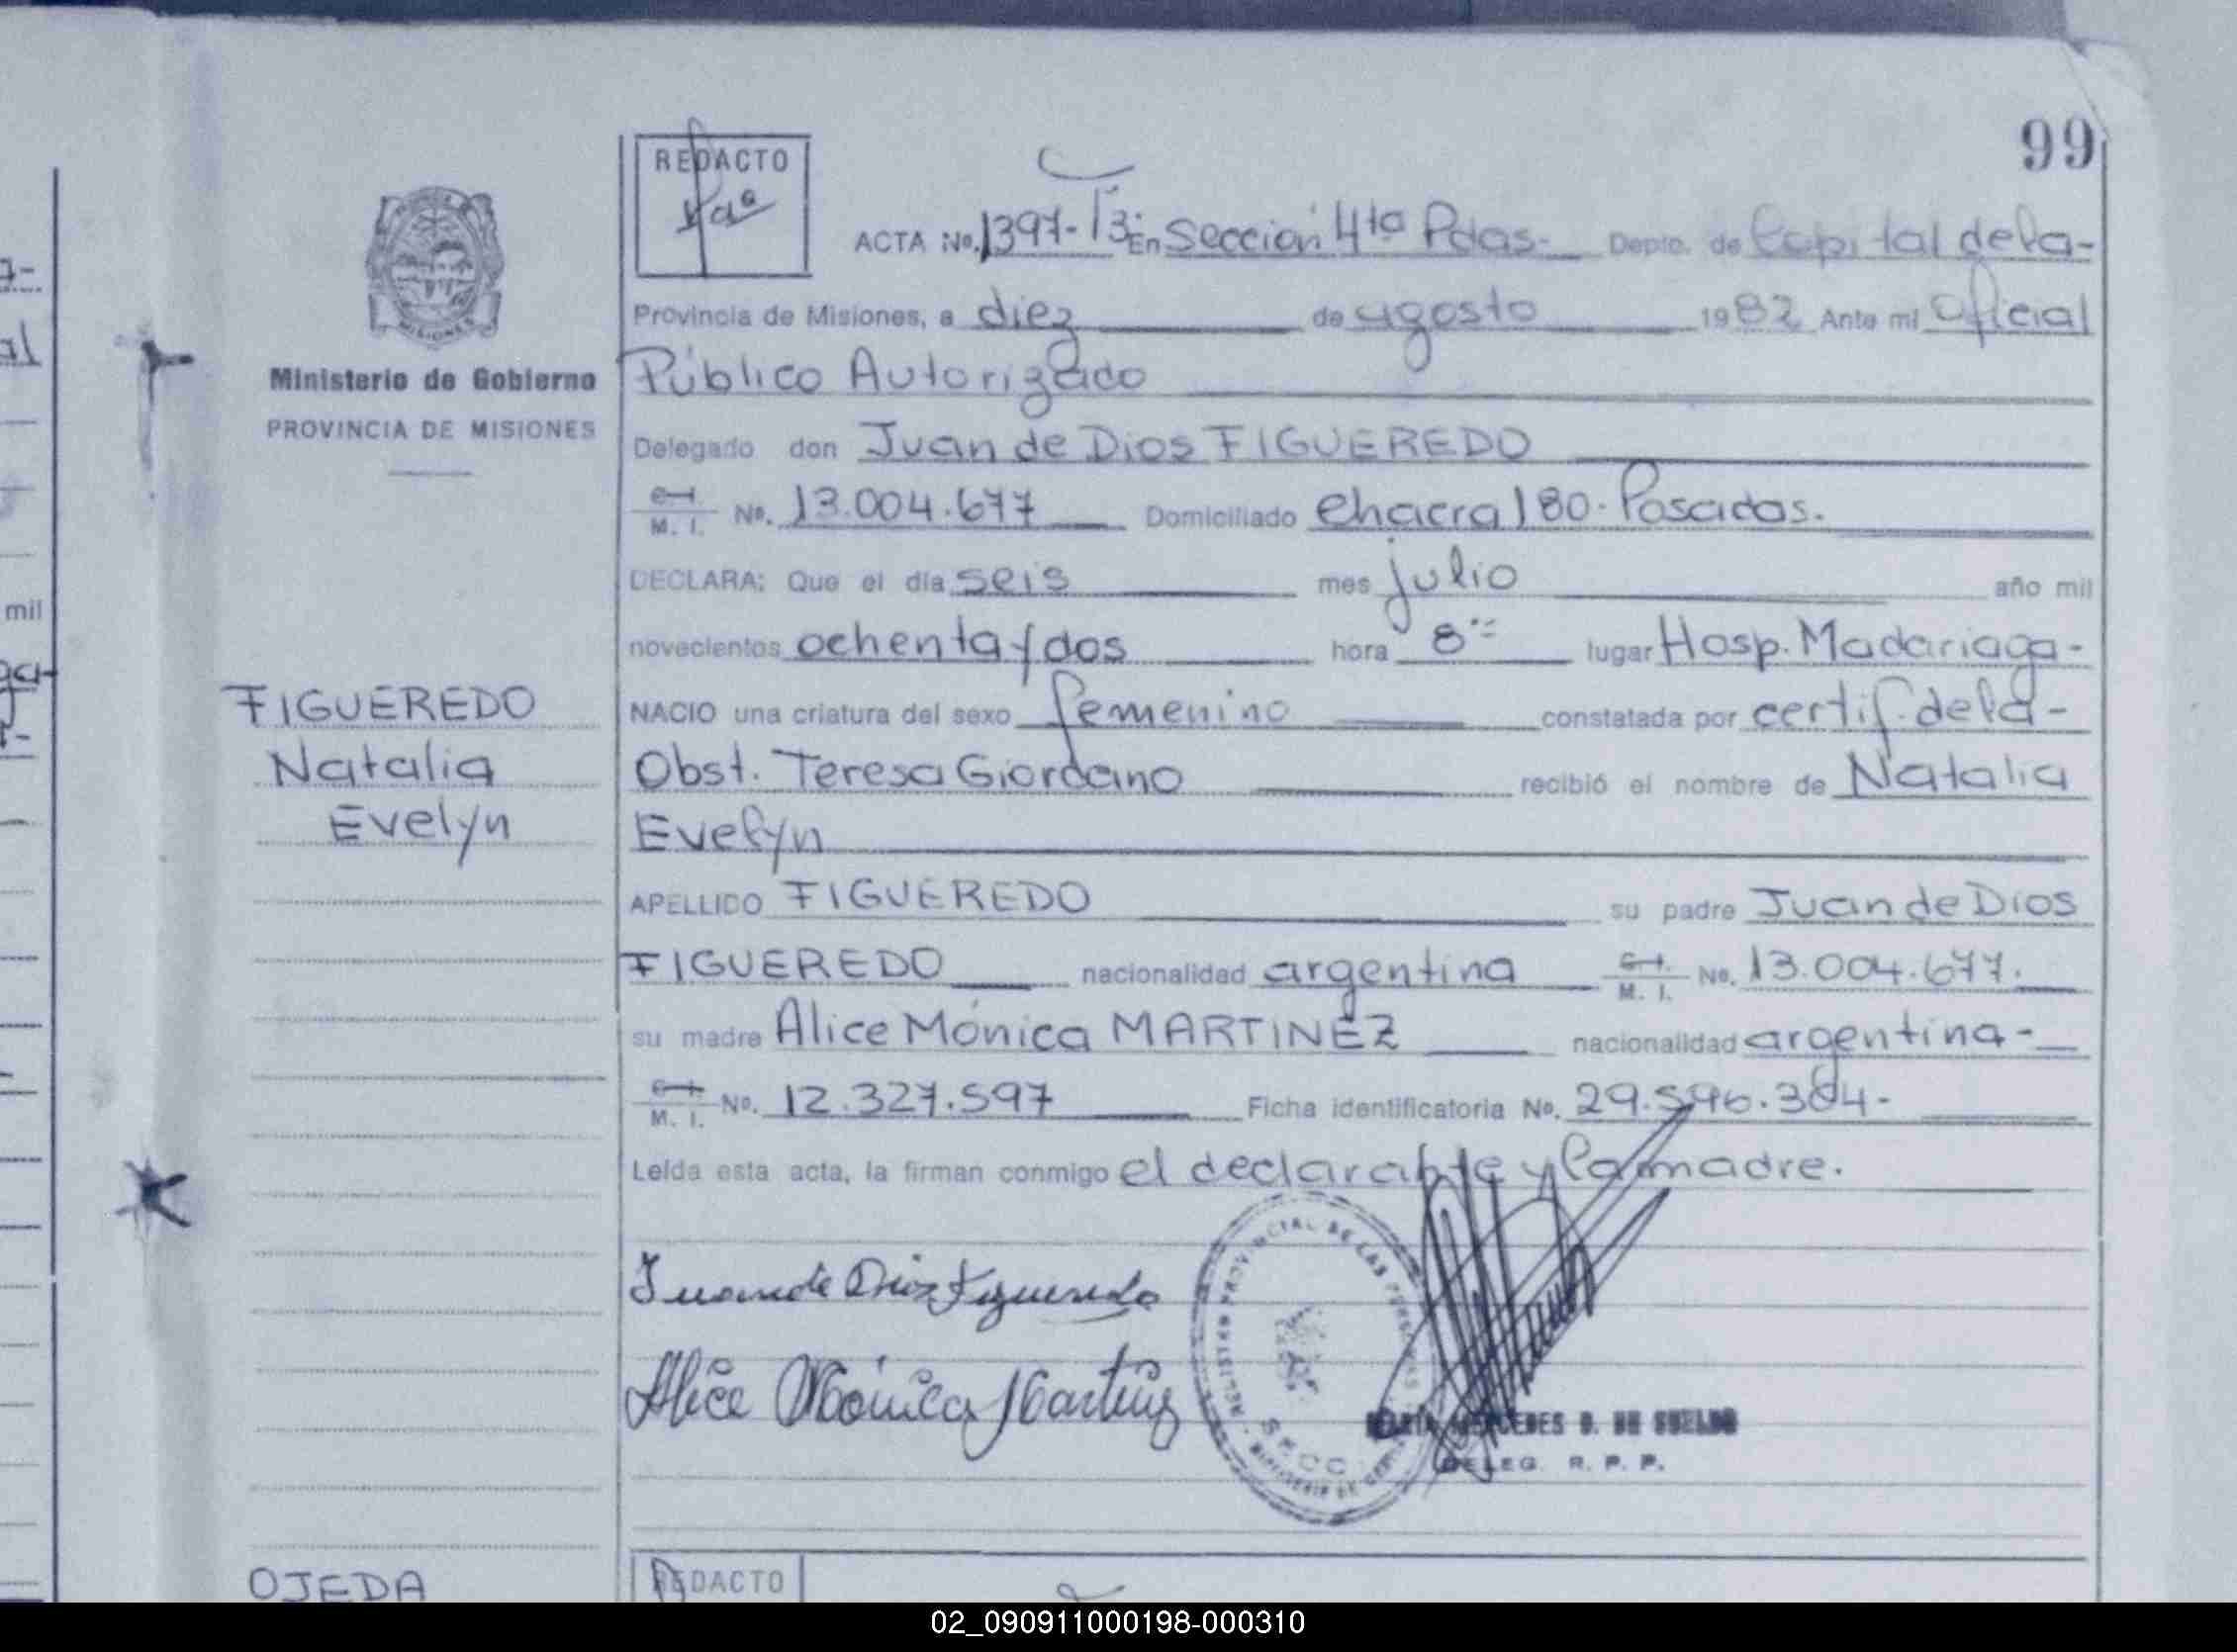 99
REDACTO
ACTA No. 1397-T3: En Sección 4ta Pdas- Depto. de Capital de la-
Provincia de Misiones, a diez de agosto 1982 Ante mi Oficial
Público Autorizado
MISIONES
Ministerio de Gobierno
PROVINCIA DE MISIONES
Delegado don Juan de Dios FIGUEREDO
C.I. M. I. No. 13.004.677 Domiciliado Chacra 180. Posadas.
DECLARA: Que el día seis mes julio año mil
novecientos ochenta y dos hora 8 lugar Hosp. Madariaga-
NACIO una criatura del sexo femenino constatada por certif. de la-
Obst. Teresa Giordano recibió el nombre de Natalia
Evelyn
FIGUEREDO
Natalia
Evelyn
APELLIDO FIGUEREDO su padre Juan de Dios
FIGUEREDO nacionalidad argentina C.I. M. I. No. 13.004.677.
su madre Alice Mónica MARTINEZ nacionalidad argentina-
C.I. M. I. No. 12.327.597 Ficha identificatoria No. 29.596.384-
Leída esta acta, la firman conmigo el declarante y la madre.
Juan de Dios Figueredo
Alice Mónica Martinez
PROVINCIAL DE LAS PERSONAS
MERCEDES D. DE
DELEG. R. P. P.
OJEDA
REDACTO
mil
02_090911000198-000310